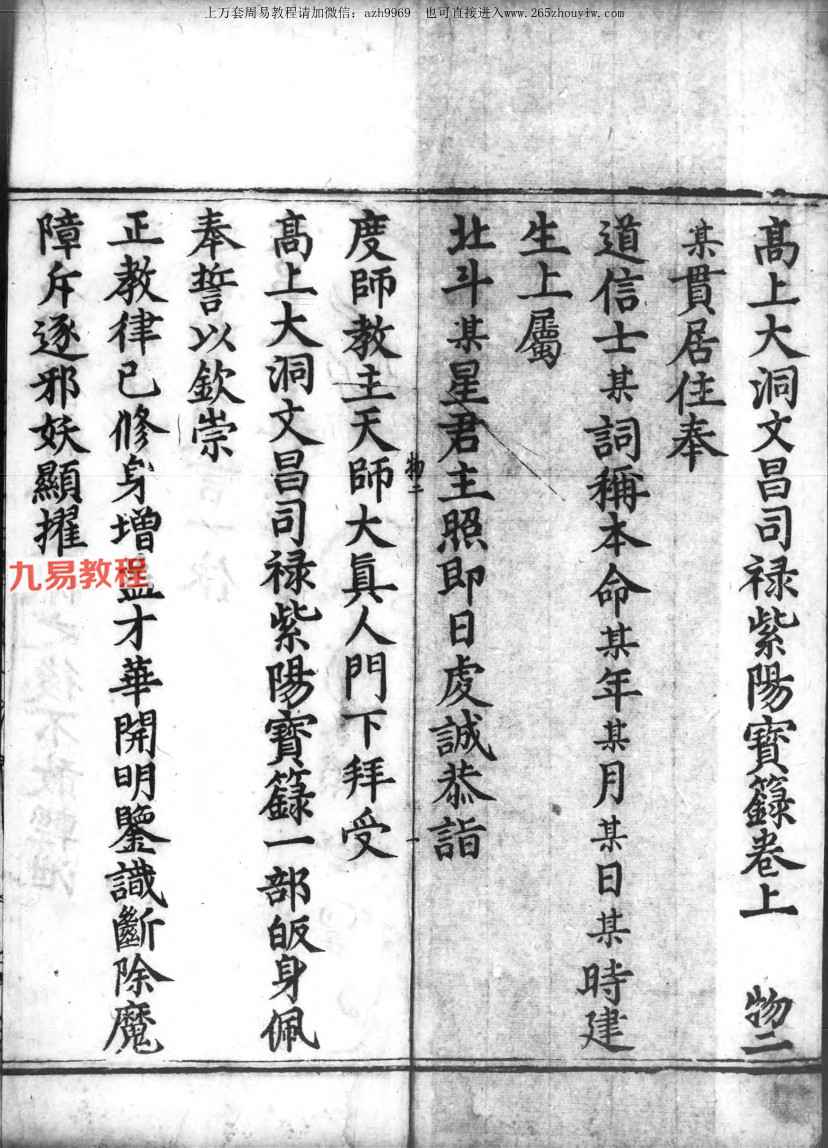 上万套周易教程请加微信：azh9969 也可直接进入www.265zhouyiw.com
高上大洞文昌司禄紫陽寳籙卷上 物二
某貫居住奉
道信士某詞稱本命某年某月某日某時建
生上屬
北斗某星君主照即日虔誠恭詣
度師教主天師大眞人門下拜受
高上大洞文昌司禄紫陽寳籙一部皈身佩
奉誓以欽崇
正教律己修身增益才華開明鑒識斷除魔
障斥逐邪妖顯擢
物二
一
九易教程